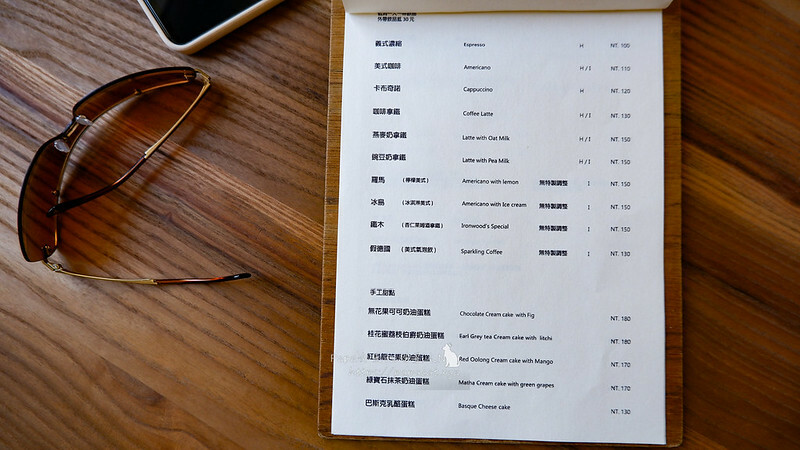 外帶飲品折 30 元
義式濃縮 Espresso H NT. 100
美式咖啡 Americano H / I NT. 110
卡布奇諾 Cappuccino H NT. 120
咖啡拿鐵 Coffee Latte H / I NT. 130
燕麥奶拿鐵 Latte with Oat Milk H / I NT. 150
豌豆奶拿鐵 Latte with Pea Milk H / I NT. 150
羅馬 (檸檬美式) Americano with lemon 無特製調整 I NT. 150
冰島 (冰淇淋美式) Americano with Ice cream 無特製調整 I NT. 150
鐵木 (杏仁萊姆酒拿鐵) Ironwood's Special 無特製調整 I NT. 150
假德國 (美式氣泡飲) Sparkling Coffee 無特製調整 I NT. 130
手工甜點
無花果可可奶油蛋糕 Chocolate Cream cake with Fig NT. 180
桂花蜜荔枝伯爵奶油蛋糕 Earl Grey tea Cream cake with litchi NT. 180
紅烏龍芒果奶油蛋糕 Red Oolong Cream cake with Mango NT. 170
綠寶石抹茶奶油蛋糕 Matha Cream cake with green grapes NT. 170
巴斯克乳酪蛋糕 Basque Cheese cake NT. 130